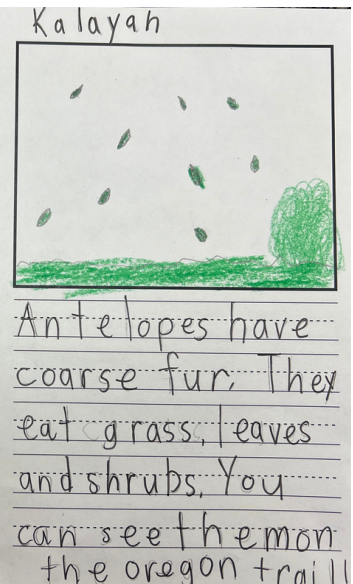 Kalayah
Antelopes have
coarse fur. They
eat grass, leaves
and shrubs. You
can see them on
the oregon trail!